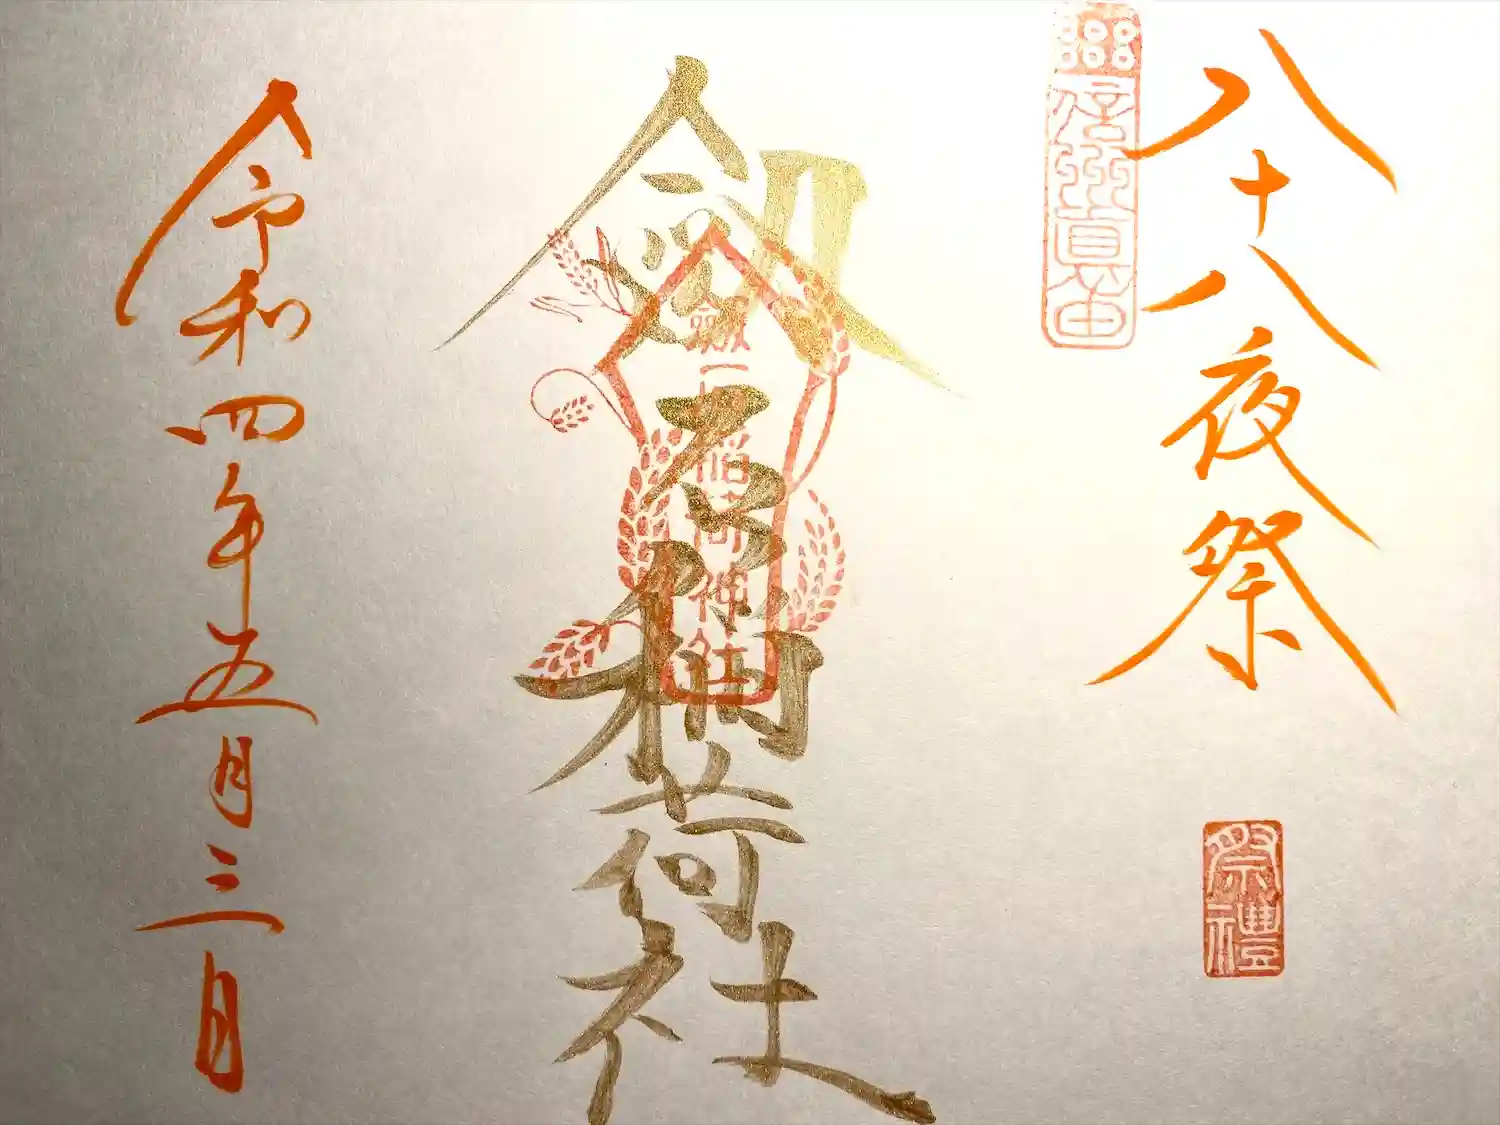 八十八夜祭
信州眞田
祭禮
稲荷社
稲荷神社
令和四年五月三日